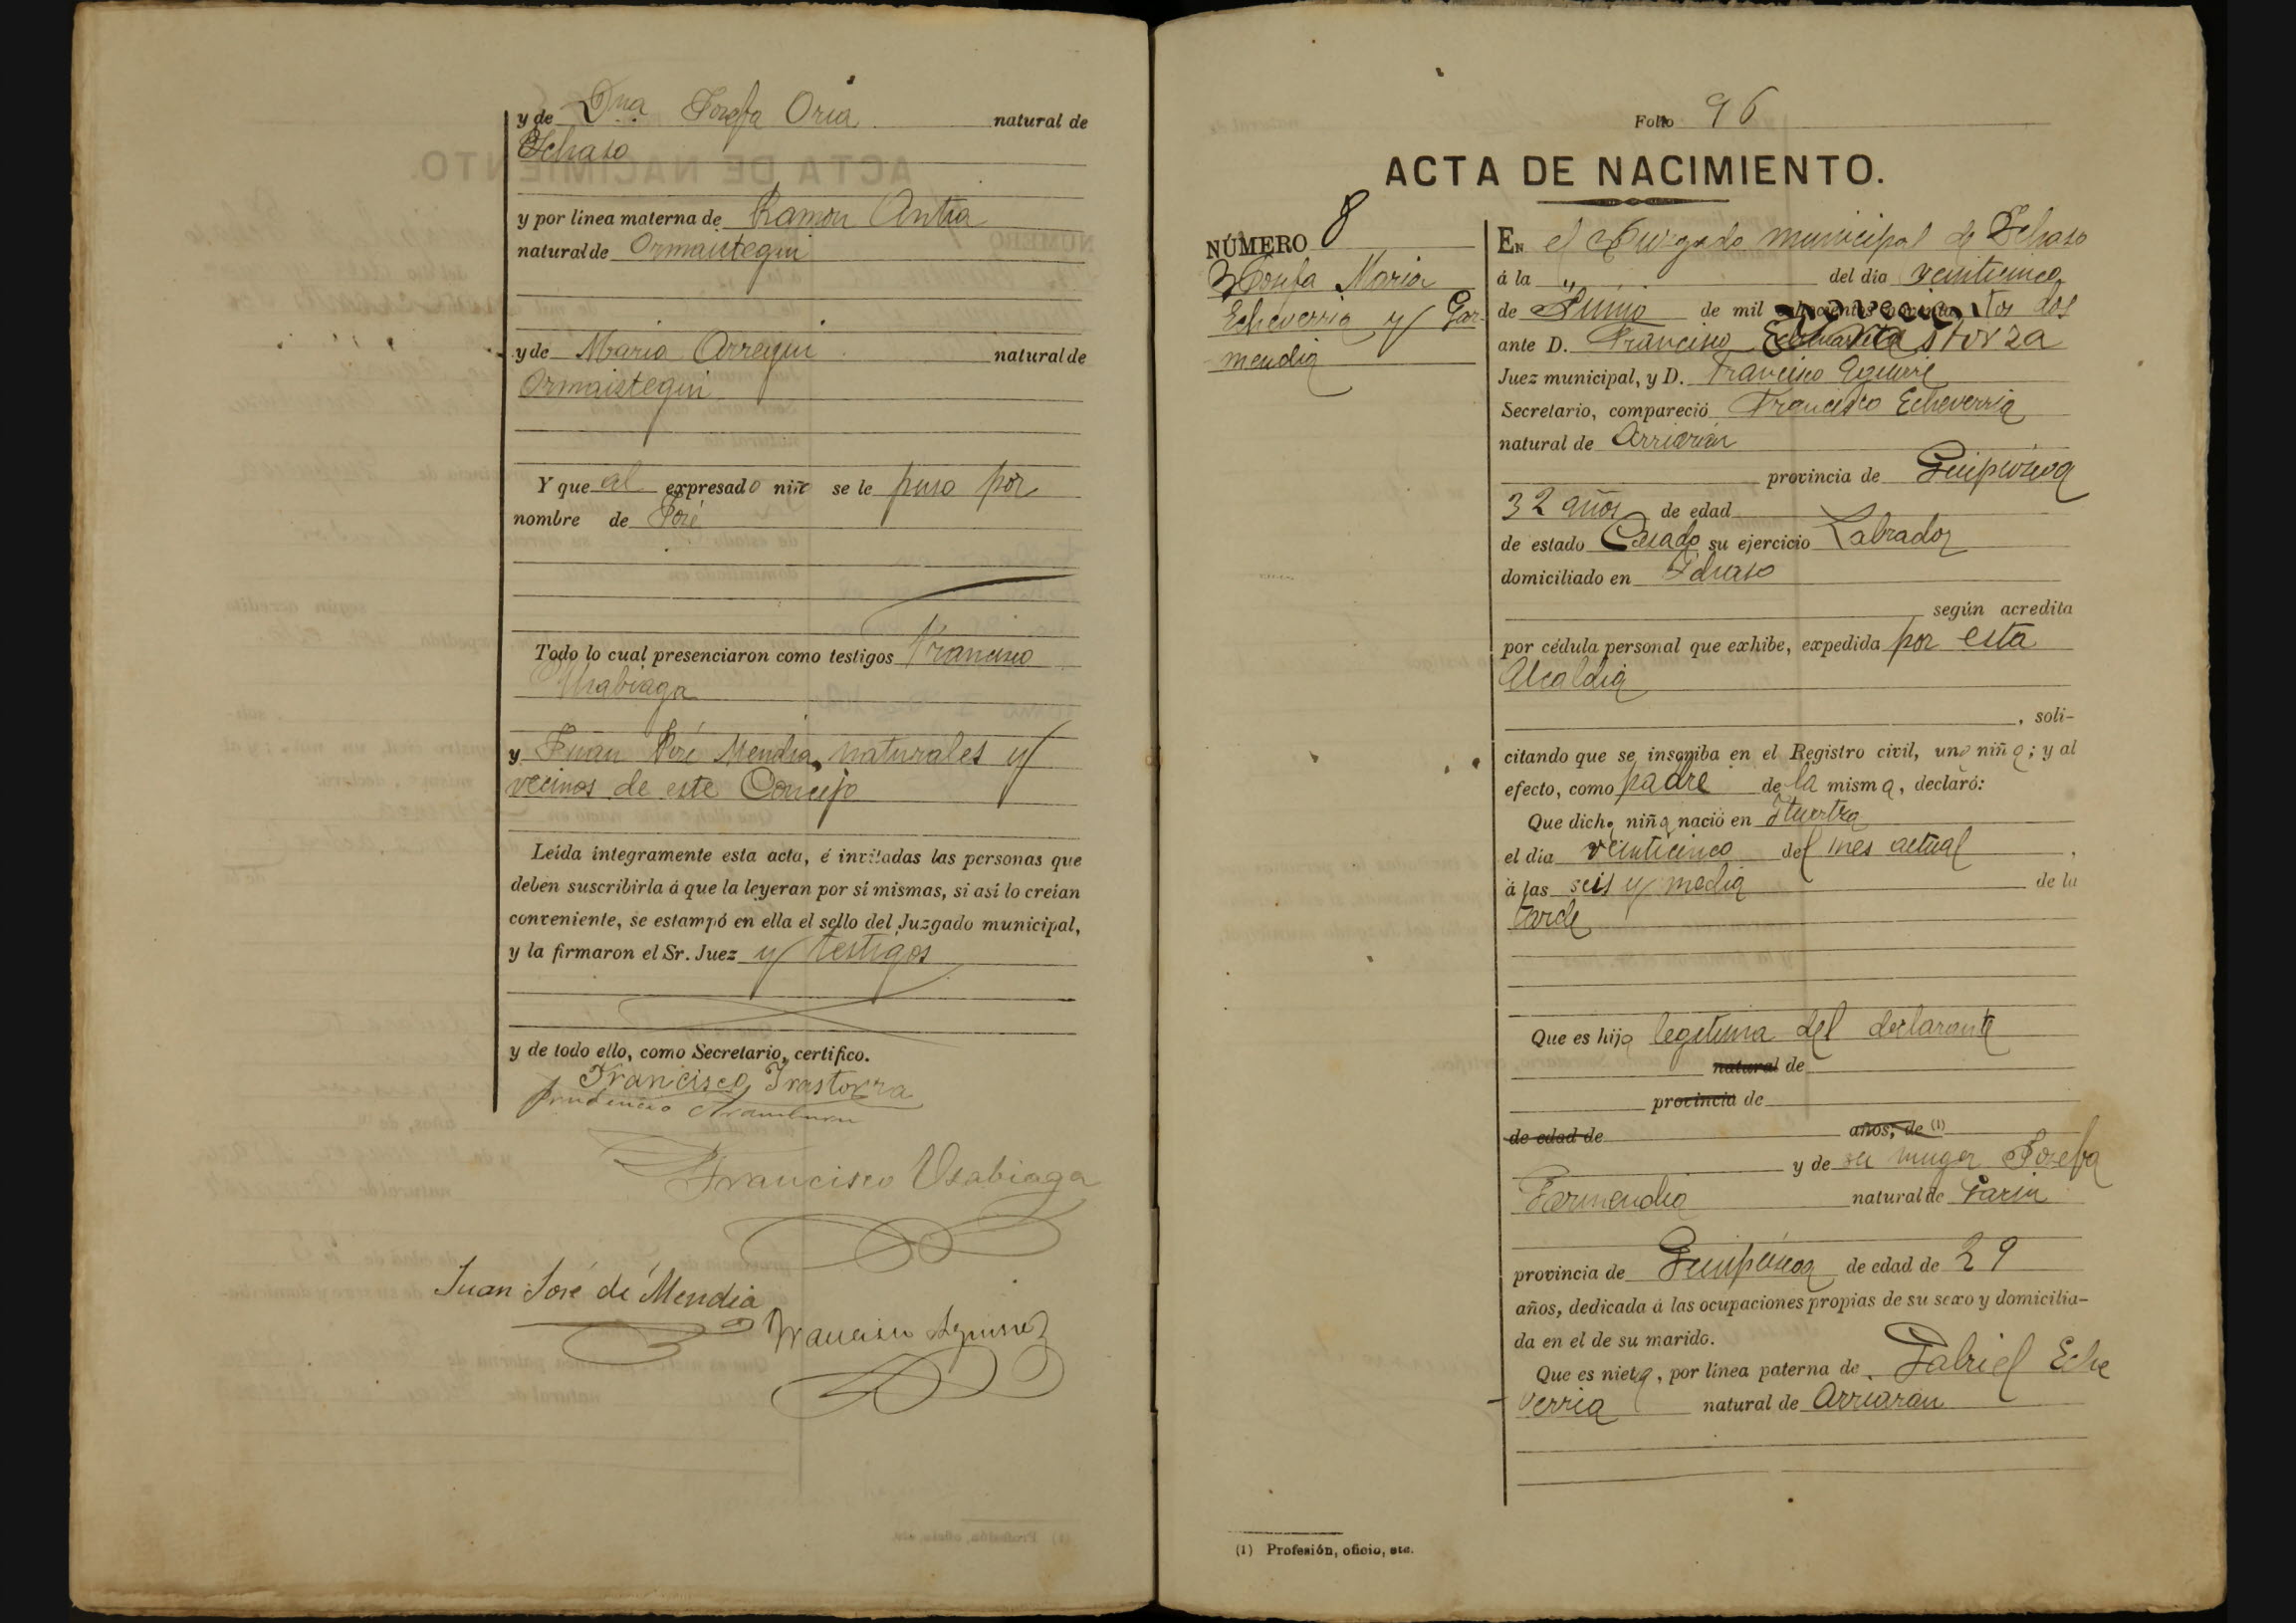 y de Dña Josefa Oria natural de
Ichaso
y por línea materna de Ramon Antia
natural de Ormaiztegui
y de Maria Arregui natural de
Ormaiztegui
Y que al expresado niño se le puso por
nombre de José
Todo lo cual presenciaron como testigos Francisco
Usabiaga
y Juan José Mendia, naturales y
vecinos de este Concejo
Leída íntegramente esta acta, é invitadas las personas que
deben suscribirla á que la leyeran por sí mismas, si así lo creían
conveniente, se estampó en ella el sello del Juzgado municipal,
y la firmaron el Sr. Juez y testigos
y de todo ello, como Secretario, certifico.
Francisco Irastorza
Prudencio Aramburu
Francisco Usabiaga
Juan José de Mendia
Francisco Aguirre
Folio 96
ACTA DE NACIMIENTO.
NÚMERO 8
Josefa Maria
Echeverria y Gar-
mendia
EN el Juzgado municipal de Ichaso
á la " del día veinticinco
de Junio de mil novecientos dos
ante D. Francisco Irastorza
Juez municipal, y D. Francisco Aguirre
Secretario, compareció Francisco Echeverria
natural de Arriarán
provincia de Guipúzcoa
32 años de edad
de estado Casado su ejercicio Labrador
domiciliado en Ichaso
según acredita
por cédula personal que exhibe, expedida por esta
Alcaldia
, soli-
citando que se inscriba en el Registro civil, una niña; y al
efecto, como padre de la misma, declaró:
Que dicha niña nació en
el día veinticinco del mes actual ,
á las seis y media de la
tarde
Que es hija legitima del declarante
natural de
provincia de
de edad de años, de (1)
y de su muger Josefa
Garmendia natural de Gavia
provincia de Guipúzcoa de edad de 29
años, dedicada á las ocupaciones propias de su sexo y domicilia-
da en el de su marido.
Que es nieta, por línea paterna de Gabriel Eche
verria natural de Arriarán
(1) Profesión, oficio, etc.